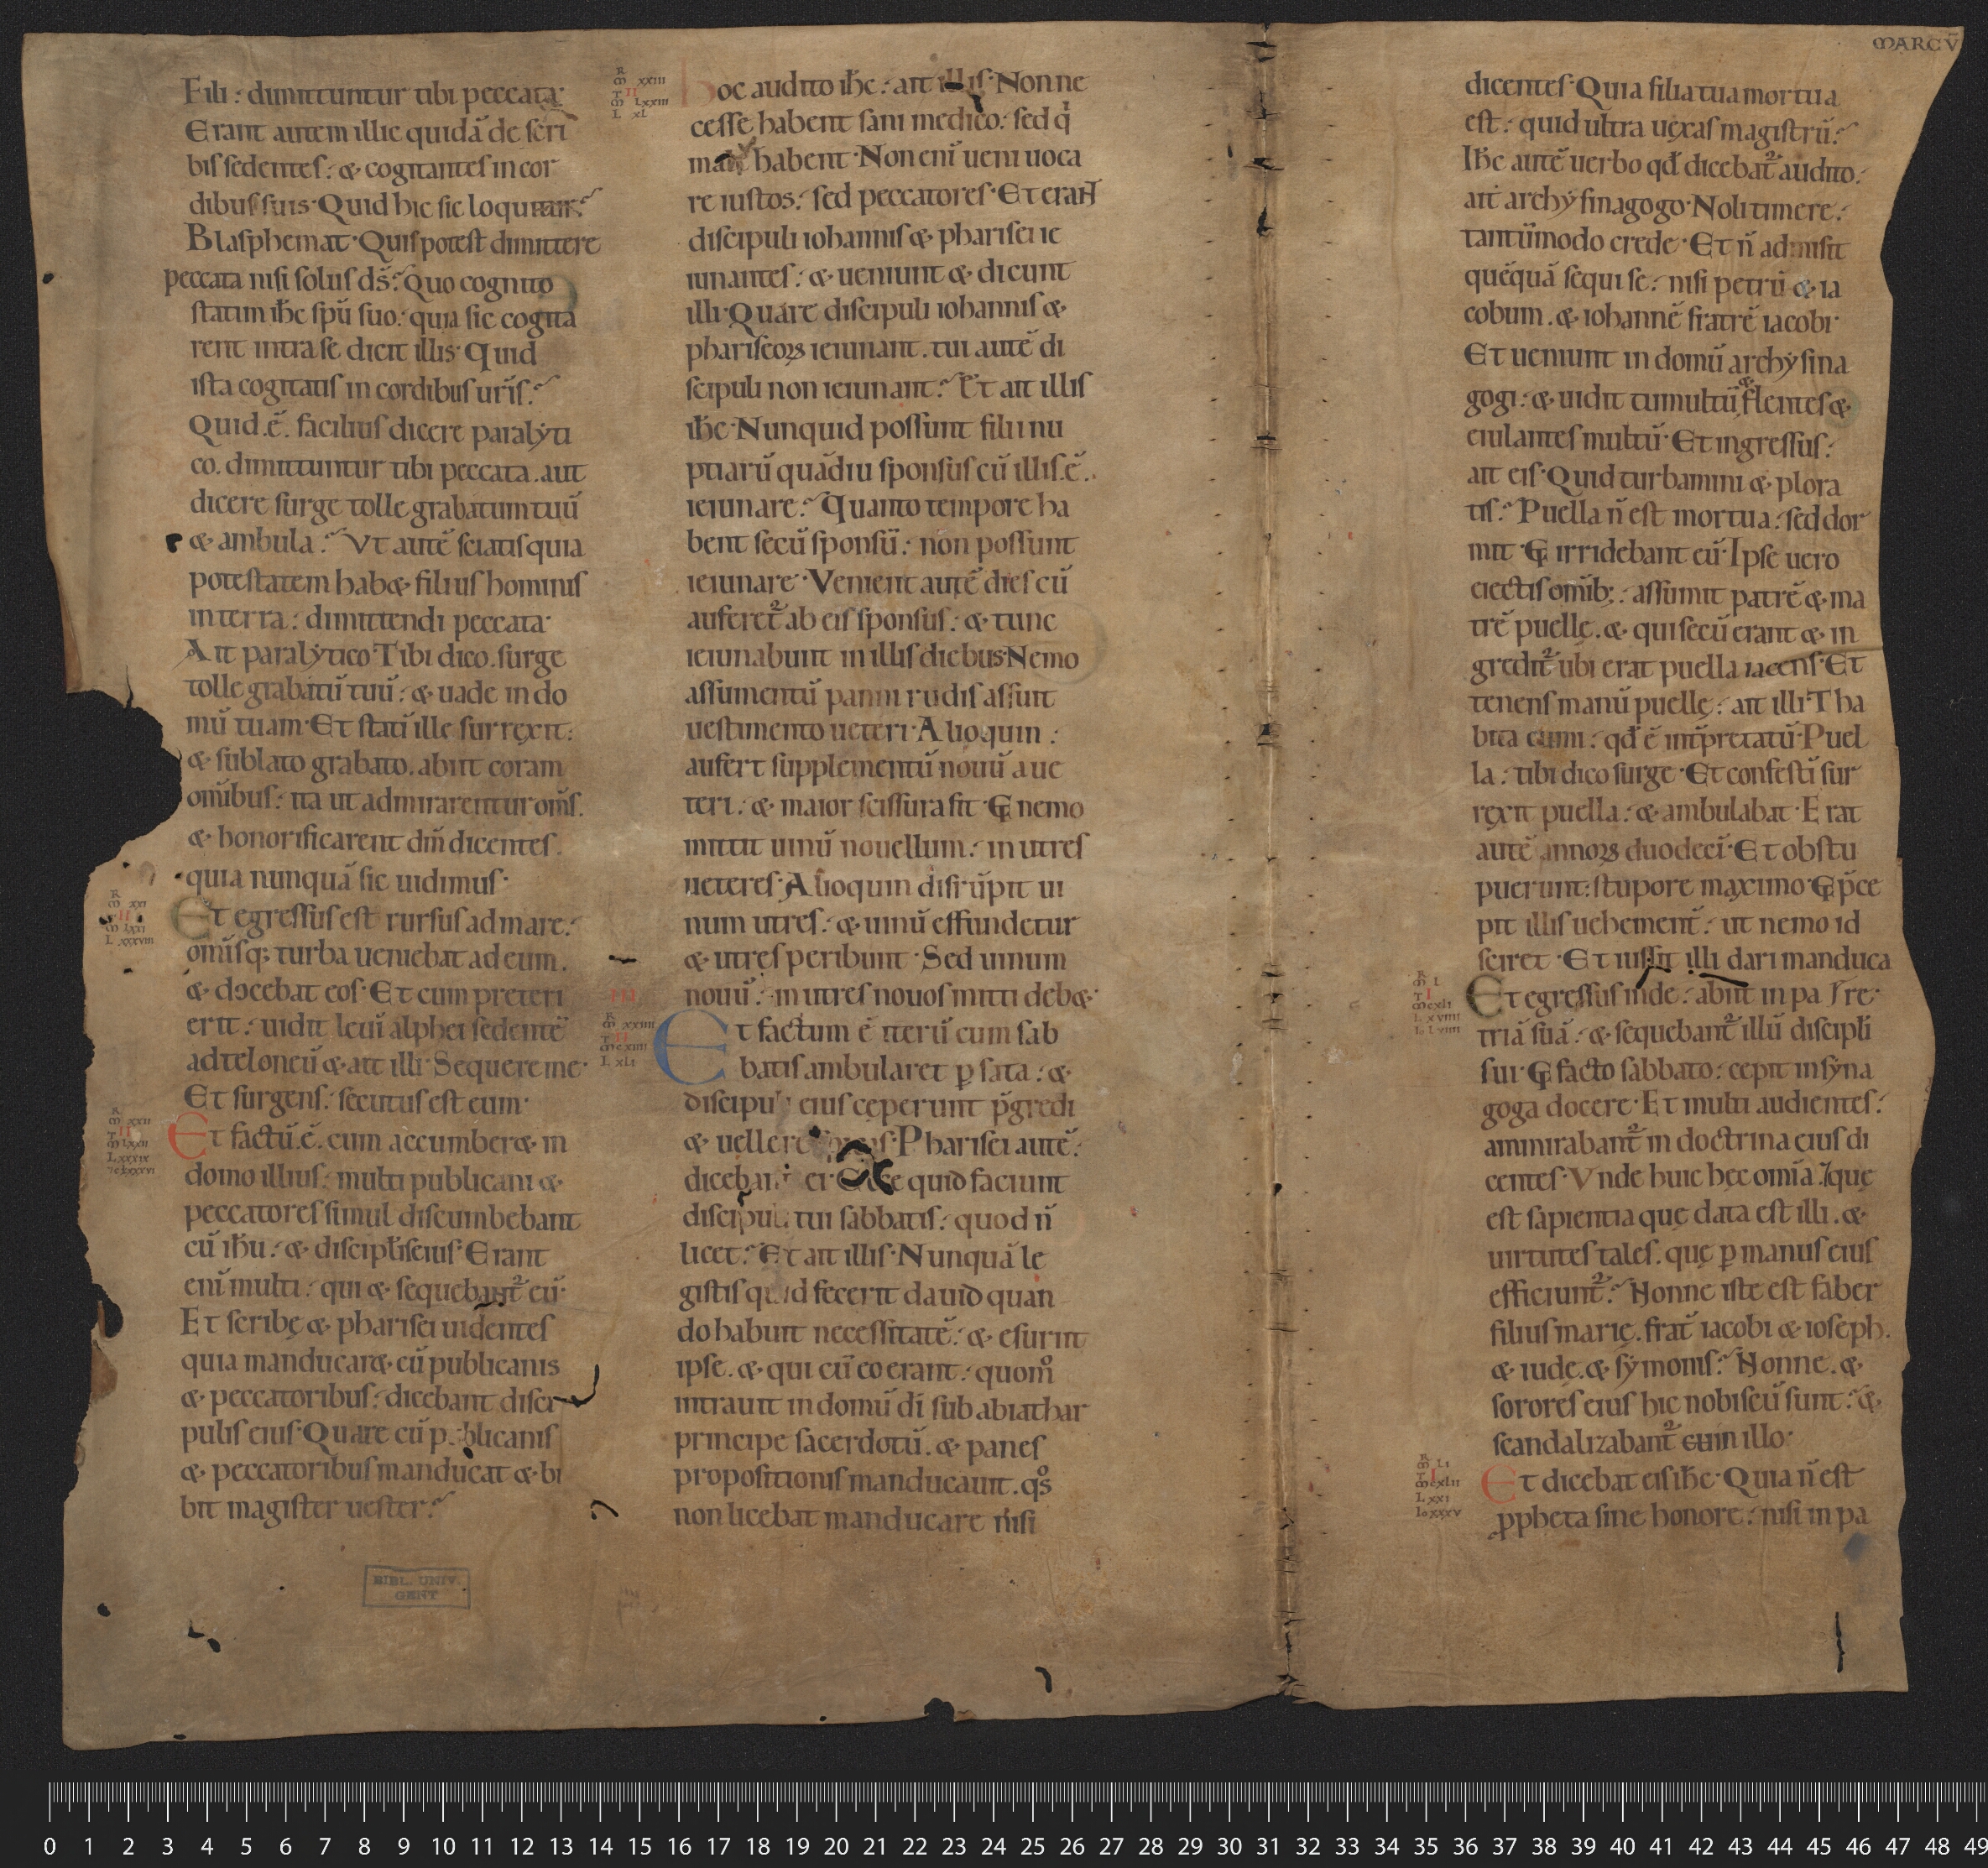 Fili: dimittuntur tibi peccata·
Erant autem illic quidā de scri
bis sedentes: & cogitantes in cor
dibus suis· Quid hic sic loquitur?
Blasphemat· Quis potest dimittere
peccata nisi solus d̄s? Quo cognito
statim ih̄c sp̄u suo: quia sic cogita
rent intra se dicit illis· Quid
ista cogitatis in cordibus ur̄is?
Quid .ē. facilius dicere paralẏti
co. dimittuntur tibi peccata. aut
dicere surge tolle grabatum tuū
& ambula? Vt autē sciatis quia
potestatem hab& filius hominis
in terra: dimittendi peccata·
Ait paralẏtico· Tibi dico. surge
tolle grabatū tuū: & uade in do
mū tuam· Et statī ille surrexit:
& sublato grabato. abiit coram
omībus: ita ut admirarentur om̄s.
& honorificarent dm̄ dicentes.
quia nunquā sic uidimus·
Et egressus est rursus ad mare:
omīsq; turba ueniebat ad eum.
& docebat eos· Et cum preteri
erit: uidit leui alphei sedentē
ad teloneū & ait illi· Sequere me·
Et surgens: secutus est eum·
Et factū .ē. cum accumber& in
domo illius: multi publicani &
peccatores simul discumbebant
cū ih̄u: & discipl̄is eius· Erant
enī multi: qui & sequebant² eū·
Et scribę & pharisei uidentes
quia manducar& cū publicanis
& peccatoribus: dicebant disci
pulis eius· Quare cū publicanis
& peccatoribus manducat & bi
bit magister uester?
R
M xxi
T II
M lxxi
L xxxviii
R
M xxii
T II
M lxxii
L xxxix
R
M xxiii
T II
M lxxiii
L xl
hoc audito ih̄c: ait illis· Non ne
cesse habent sani medico: sed q̇
male habent· Non enī ueni uoca
re iustos: sed peccatores· Et erant
discipuli iohannis & pharisei ie
iunantes: & ueniunt & dicunt
illi· Quare discipuli iohannis &
phariseoꝝ ieiunant. tui autē di
scipuli non ieiunant? Et ait illis
ih̄c· Nunquid possunt filii nu
ptiarū quādiu sponsus cū illis .ē.
ieiunare? Quanto tempore ha
bent secū sponsū: non possunt
ieiunare· Venient autē dies cū
auferet² ab eis sponsus: & tunc
ieiunabunt in illis diebus· Nemo
assumentū panni rudis assuit
uestimento ueteri· Alioquin:
aufert supplementū nouū a ue
teri: & maior scissura fit· Et nemo
mittit uinū nouellum: in utres
ueteres· Alioquin disrūpit ui
num utres: & uinū effundetur
& utres peribunt· Sed uinum
nouū: in utres nouos mitti deb&·
III
R
M xxiiii
T II
M cxiiii
L xli
Et factum ē iterū cum sab
batis ambularet ꝑ sata: &
discipuli eius cęperunt p̄gredi
& uellere spicas· Pharisei autē:
dicebant ei· Ecce quid faciunt
discipuli tui sabbatis: quod n̄
licet? Et ait illis· Nunquā le
gistis quid fecerit dauid quan
do habuit necessitatē: & esuriit
ipse. & qui cū eo erant: quom̊
intrauit in domū dī sub abiathar
principe sacerdotū. & panes
propositionis manducauit. q̊s
non licebat manducare nisi
MARCV̄
dicentes· Quia filia tua mortua
est: quid ultra uexas magistrū?
Ih̄c autē uerbo qd̄ dicebat² audito:
ait archẏsinagogo· Noli timere:
tantūmodo crede· Et n̄ admisit
quēquā sequi se: nisi petrū & ia
cobum. & iohannē fratrē iacobi·
Et ueniunt in domū archẏsina
gogi: & uidit tumultū & flentes &
eiulantes multū· Et ingressus:
ait eis· Quid turbamini & plora
tis? Puella n̄ est mortua: sed dor
mit· Et irridebant eū· Ipse uero
eiectis omīb;: assumit patrē & ma
trē puellę. & qui secū erant & in
gredit² ubi erat puella iacens· Et
tenens manū puellę: ait illi· Tha
bita cumi: qd̄ ē int̄pretatū· Puel
la: tibi dico surge· Et confestī sur
rexit puella: & ambulabat· Erat
autē annoꝝ duodecī· Et obstu
puerunt: stupore maximo· Et p̄ce
pit illis uehement̄: ut nemo id
sciret· Et iussit illi dari manduca
R
M L
T I
M cxli
L xviiii
Io Lviiii
Et egressus inde: abiit in pa re·
triā suā: & sequebant² illū discipl̄i
sui· Et facto sabbato: cepit in sẏna
goga docere· Et multi audientes:
ammirabant² in doctrina eius di
centes· Vnde huic hęc omīa? que
est sapientia quę data est illi. &
uirtutes tales. quę ꝑ manus eius
efficiunt²? Nonne iste est faber
filius marię. frat̄ iacobi & ioseph.
& iudę. & sẏmonis? Nonne. &
sorores eius hic nobiscū sunt? &
scandalizabant² cum illo·
R
M Li
T I
M cxlii
L xxi
Io xxxv
Et dicebat eis ih̄c· Quia n̄ est
ꝓpheta sine honore: nisi in pa
BIBL. UNIV.
GENT
0 1 2 3 4 5 6 7 8 9 10 11 12 13 14 15 16 17 18 19 20 21 22 23 24 25 26 27 28 29 30 31 32 33 34 35 36 37 38 39 40 41 42 43 44 45 46 47 48 49